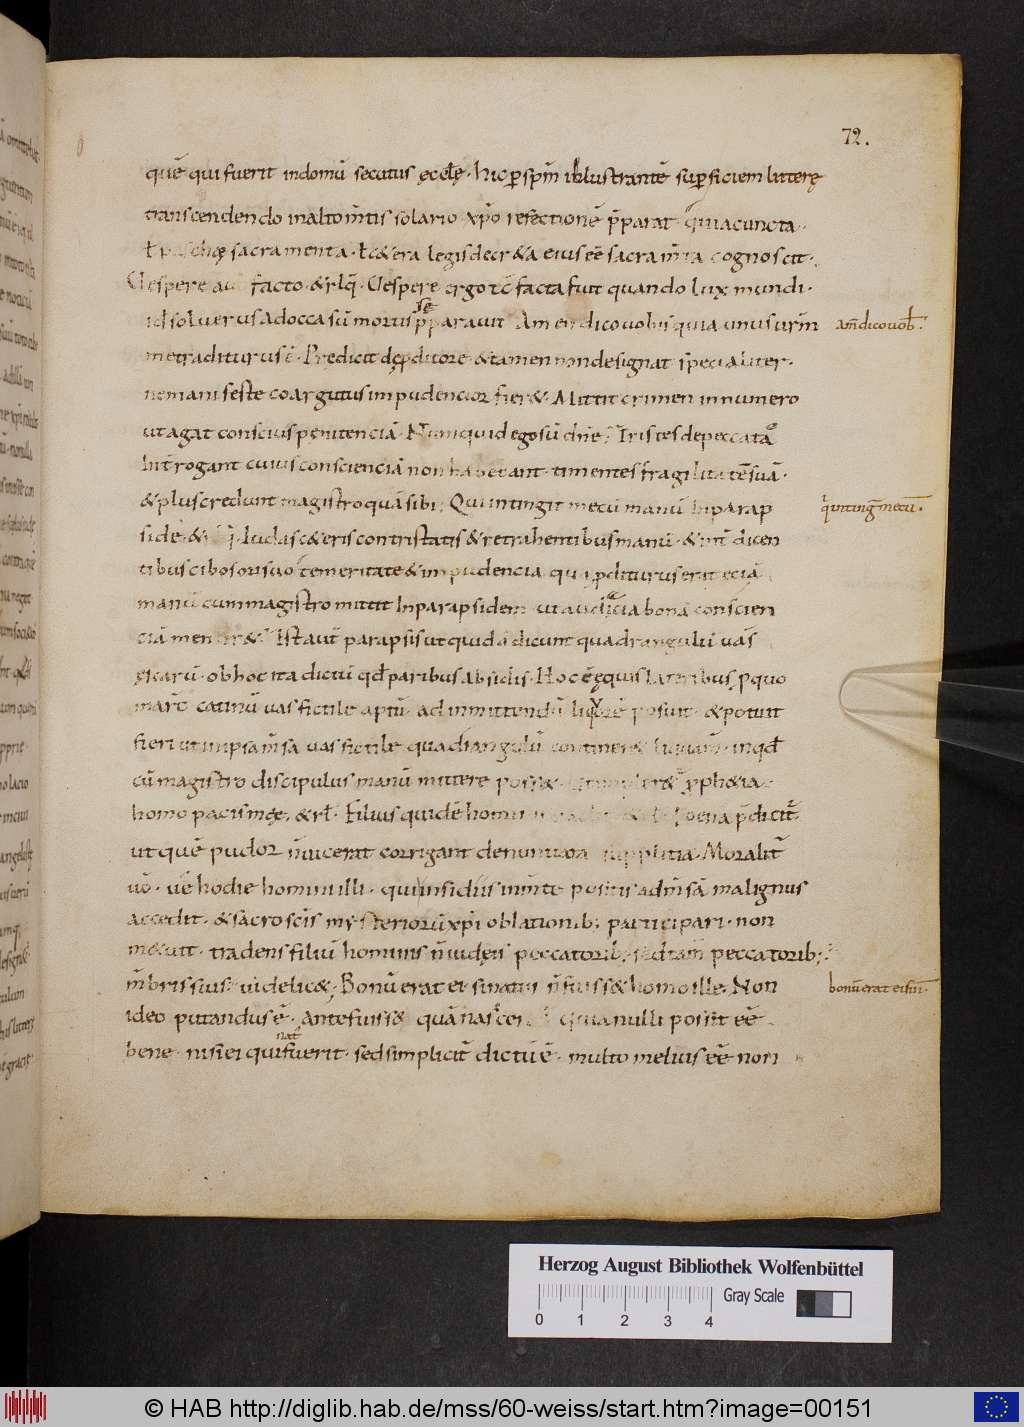 72.
quē qui fuerit indomū secutus ęcclę · hic ꝑ spm̄ illustrantē suꝑficiem litterę
transcendendo inalto m̄tis solario xp̄o refectionē p̄parat quia cuncta
ł paschę sacramenta · ł cętera legis decr&a eius eē sacram̄ta cognoscit ·
Uespere facto · & rlq̄ · Uespere ergo tc̄ facta fuit quando lux mundi ·
id sol uerus ad occasū mortis sē p̄parauit Am̄ dico uobis quia unus ur̄m
me traditurus ē · Predicit de ꝓditore & tamen non designat specialiter ·
ne manifeste coargutus impudencior fier& · Mittit crimen in numero
ut agat conscius penitenciā · Numquid ego sū dn̄e? Tristes de peccato
Int̄rogant cuius consciencia non habebant · timentes fragilitatē suā ·
& plus credunt magistro quā sibi; Qui intingit mecū manū In parap
side · & Iudas cęteris contristatis & retrahentibus manū · & int̄dicen
tibus cibos ori suo temeritate & impudencia qui ꝓditurus erit eciā
manū cum magistro mittit In parapsidem ut audacia bonā conscien
ciā Ista ut̄ parapsis ut quidā dicunt quadrangulū uas
escarū · ob hoc ita dictū qd̄ paribus absidis · Hoc ē ęquis lateribus, ꝑ quo
marc̄ catinū uas fictile aptū · ad inmittendū liquorē posuit · & potuit
fieri ut in ipsa m̄sa uas fictile quadrangulū contineret liquam̄ · in qd̄
cū magistro discipulus manū mittere poss& · ꝓph&ia ·
homo pacis meę, & rł · Filius quidē hom poena p̄dicit̄
ut quē pudor n̄ uicerat corrigant denuntiata supplitia · Moralit̄
uō · uē hodie homini illi · qui insidiis in m̄te positis ad m̄sā malignus
accedit · & sacroscīs mysteriorū xp̄i oblationib; participari · non
m&uit · tradens filiū hominis n̄ iudęis peccatorib; sed tam̄ peccatorib;
m̄bris suis uidelic&; Bonū erat ei si natus n̄ fuiss& homo ille, Non
ideo putandus ē · ante fuiss& quā nascer quia nulli possit eē
bene · nisi ei qui fuerit · sed simplicit̄ dictū ē · multo melius eē non
Am̄ dico uob̄ ·
q̄ intingit mecū ·
bonū erat ei si n̄ ·
Herzog August Bibliothek Wolfenbüttel
Gray Scale
0 1 2 3 4
© HAB http://diglib.hab.de/mss/60-weiss/start.htm?image=00151